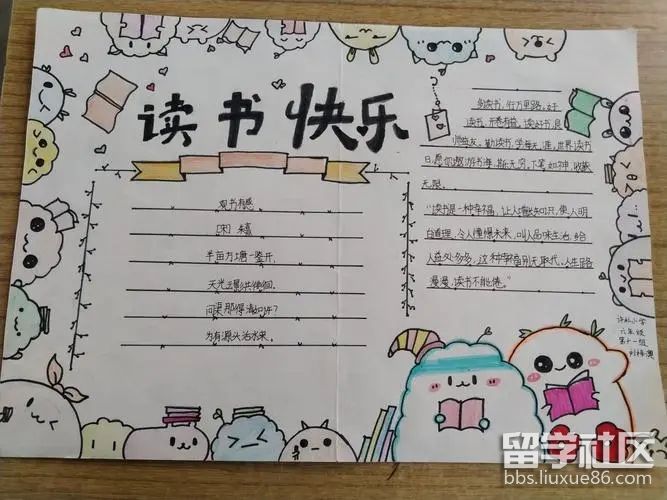 读书快乐
观书有感
[宋]朱熹
半亩方塘一鉴开,
天光云影共徘徊.
问渠那得清如许?
为有源头活水来。
多读书,行万里路,好于
读书,开卷有益,读好书,良
师益友,勤读书,学海无涯,世界读书
日,愿你遨游书海,拓无穷,下笔如神,收获
无限.
“读书是一种幸福,让人增长知识,使人明
白道理,令人憧憬未来,叫人品味生活,给
人益处多多,这种幸福别无取代,人生路
漫漫,读书不能倦.”
小学
六年级
第十一组
留学社区
bbs.liuxue86.com